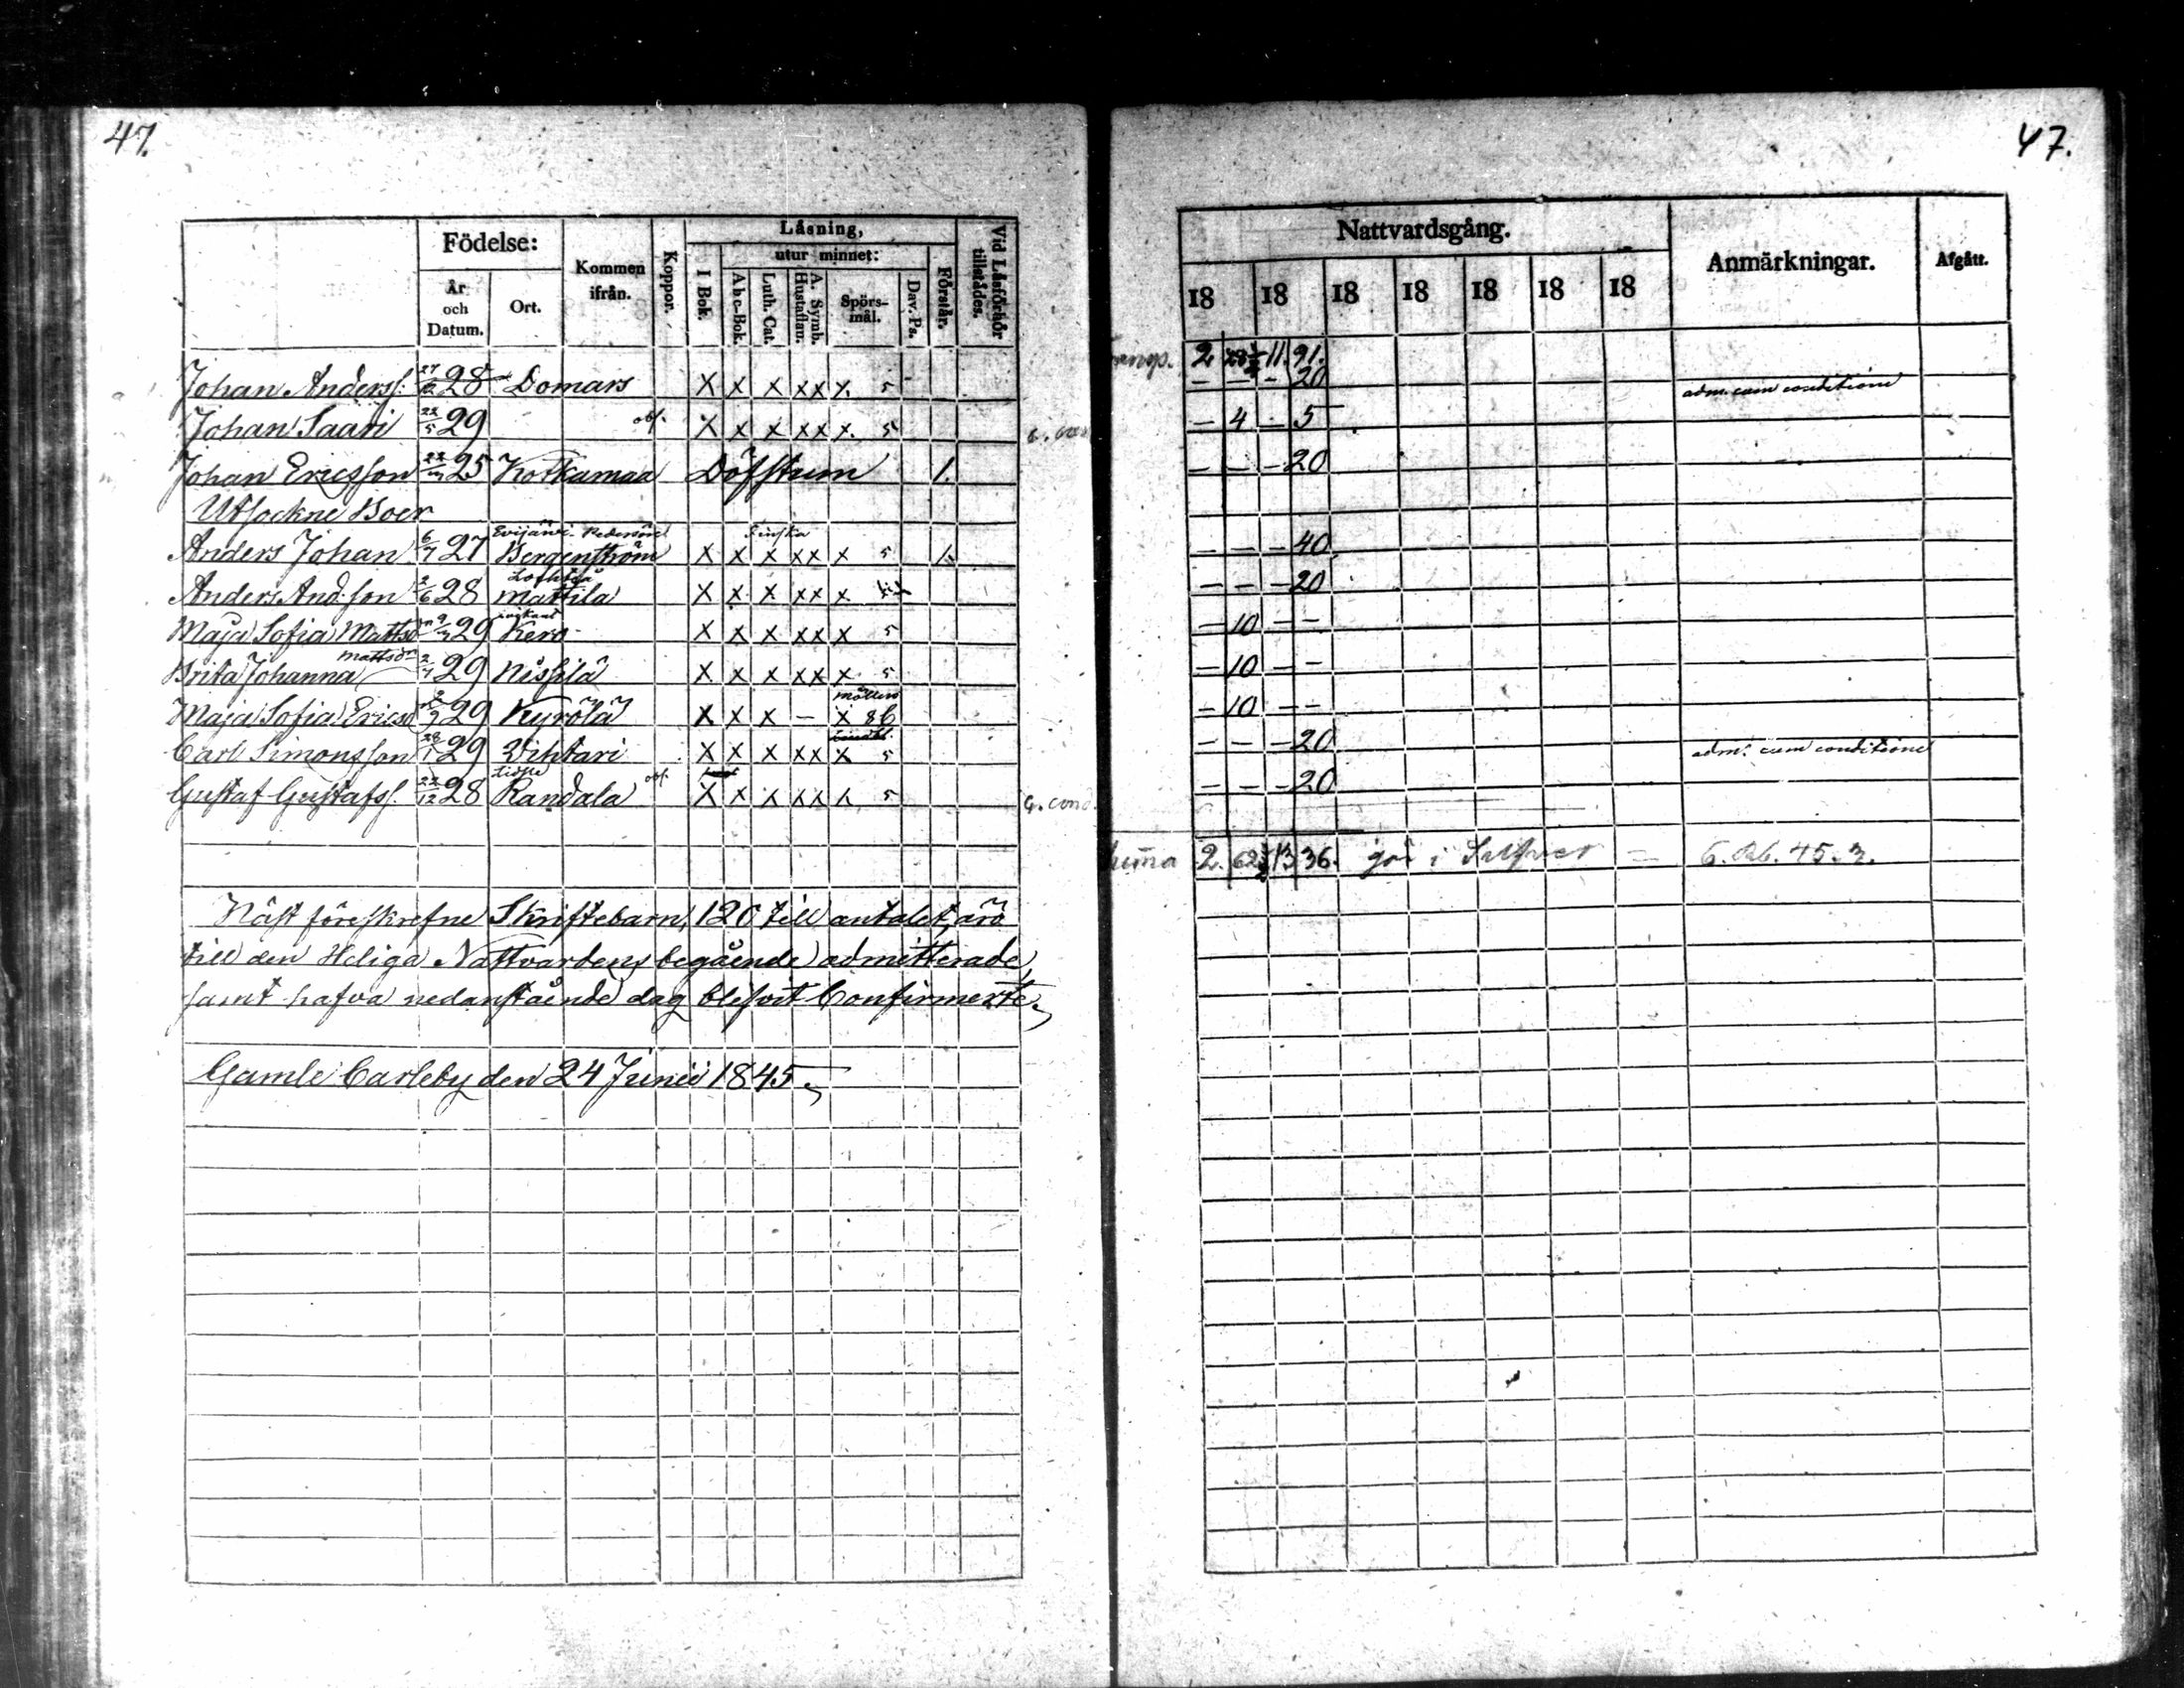 47.
Födelse:
År och Datum.
Ort.
Kommen ifrån.
Koppor.
Läsning,
utur minnet:
I Bok.
Abc-Bok.
Luth. Cat.
A. Symb. Hustaflan.
Spörs-mål.
Dav. Ps.
Förstår.
Vid Läsförhör tillstädes.
Johan Anderss: 28 Domars X x x xx x. 5
Johan Saari 22/5 29 obs. X x x xx x. 5
Johan Ericsson 25 Kotkamaa Döfstum 1.
Utsockne Boer
Evijärvi Pedersöre Finska
Anders Johan 6/7 27 Bergenström x x x xx x 5 1.
Lochteå
Anders And.son 2/6 28 Mattila x x x xx x
Maja Sofia Mattsdr 29 Kero x x x xx x 5
Mattsdr
Brita Johanna 2/7 29 Nissilä x x x xx x 5
Maja Sofia Ericsd 29 Kyrölä x x x — x 86
Carl Simonsson 28/1 29 Vihtari x x x xx x 5
Gustaf Gustafss. 22/12 28 Randala obs. X x x xx x 5
c. cond.
Näst föreskrefne Skriftebarn, 120 till antalet, äro
till den Heliga Nattvardens begående admitterade,
samt hafva nedanstående dag blifvit Confirmerte.
Gamle Carleby den 24 Junii 1845.
47.
Nattvardsgång.
Anmärkningar.
Afgått.
18 18 18 18 18 18 18
Transp. 2 28 1/2 11. 91.
— — — 20 adm. cum conditione
— 4 — 5
— — — 20
— — — 40
— — — 20
— 10 — —
— 10 — —
— 10 — —
— — — 20
adm. cum conditione
— — — 20
Summa 2. 62 1/2 13 36. gör i Silfver = 6. Rb. 45. 3.